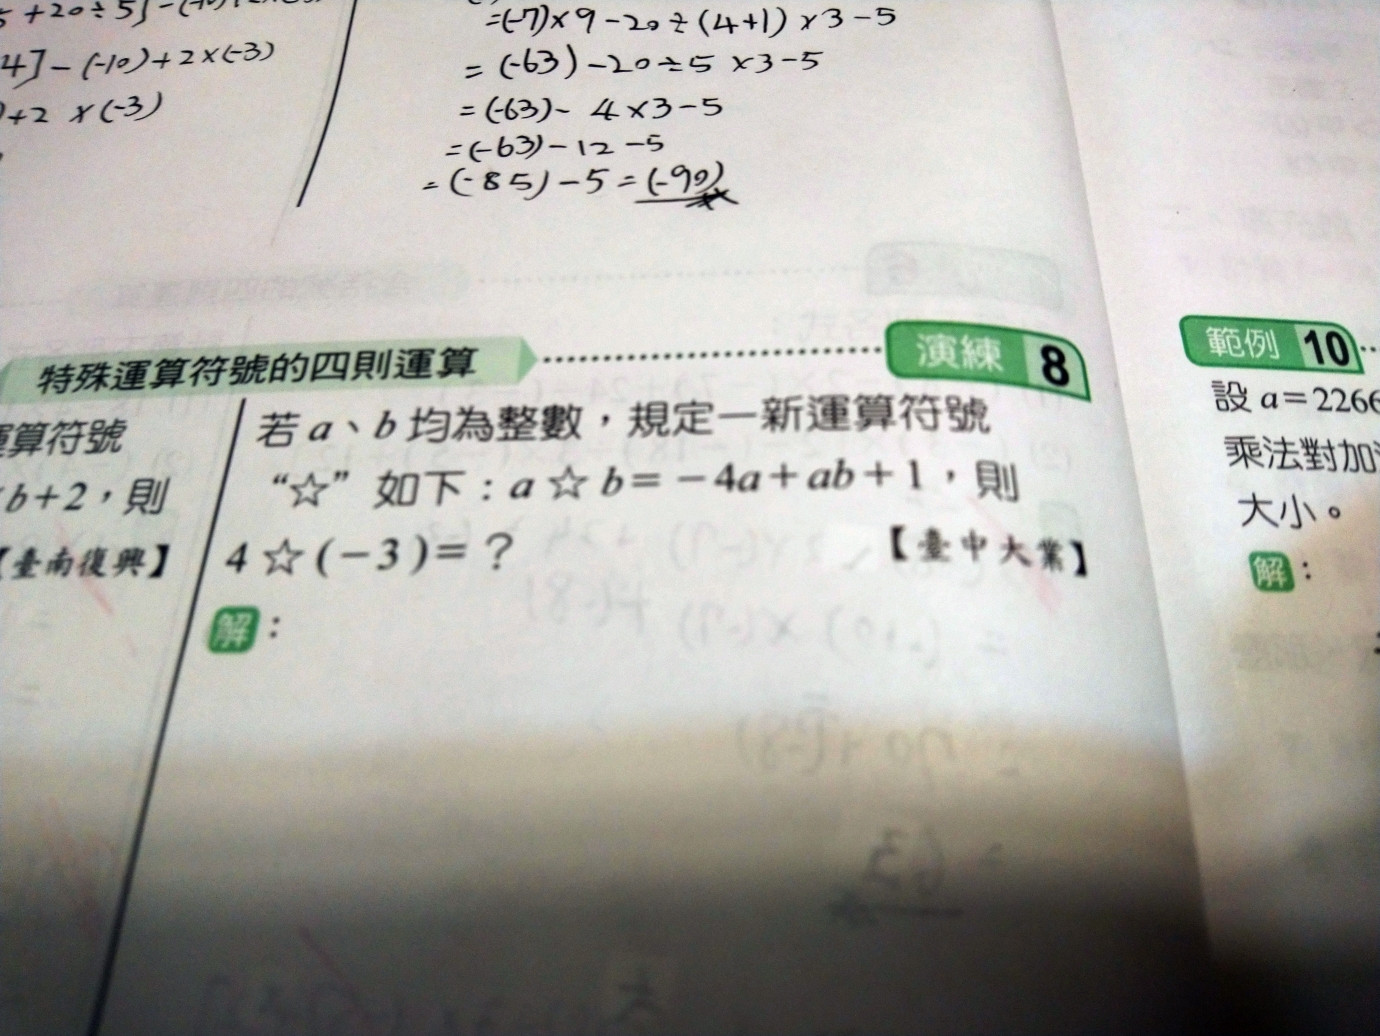 4]-(-10)+2×(-3)
)+2 ×(-3)
=(-7)×9-20÷(4+1)×3-5
=(-63)-20÷5×3-5
=(-63)-4×3-5
=(-63)-12-5
=(-85)-5=(-90)
特殊運算符號的四則運算
演練 8
運算符號
b+2，則
【臺南復興】
若 a、b 均為整數，規定一新運算符號
“☆”如下：a☆b=-4a+ab+1，則
4☆(-3)=？
【臺中大業】
解：
範例 10
設 a=2266
乘法對加
大小。
解：